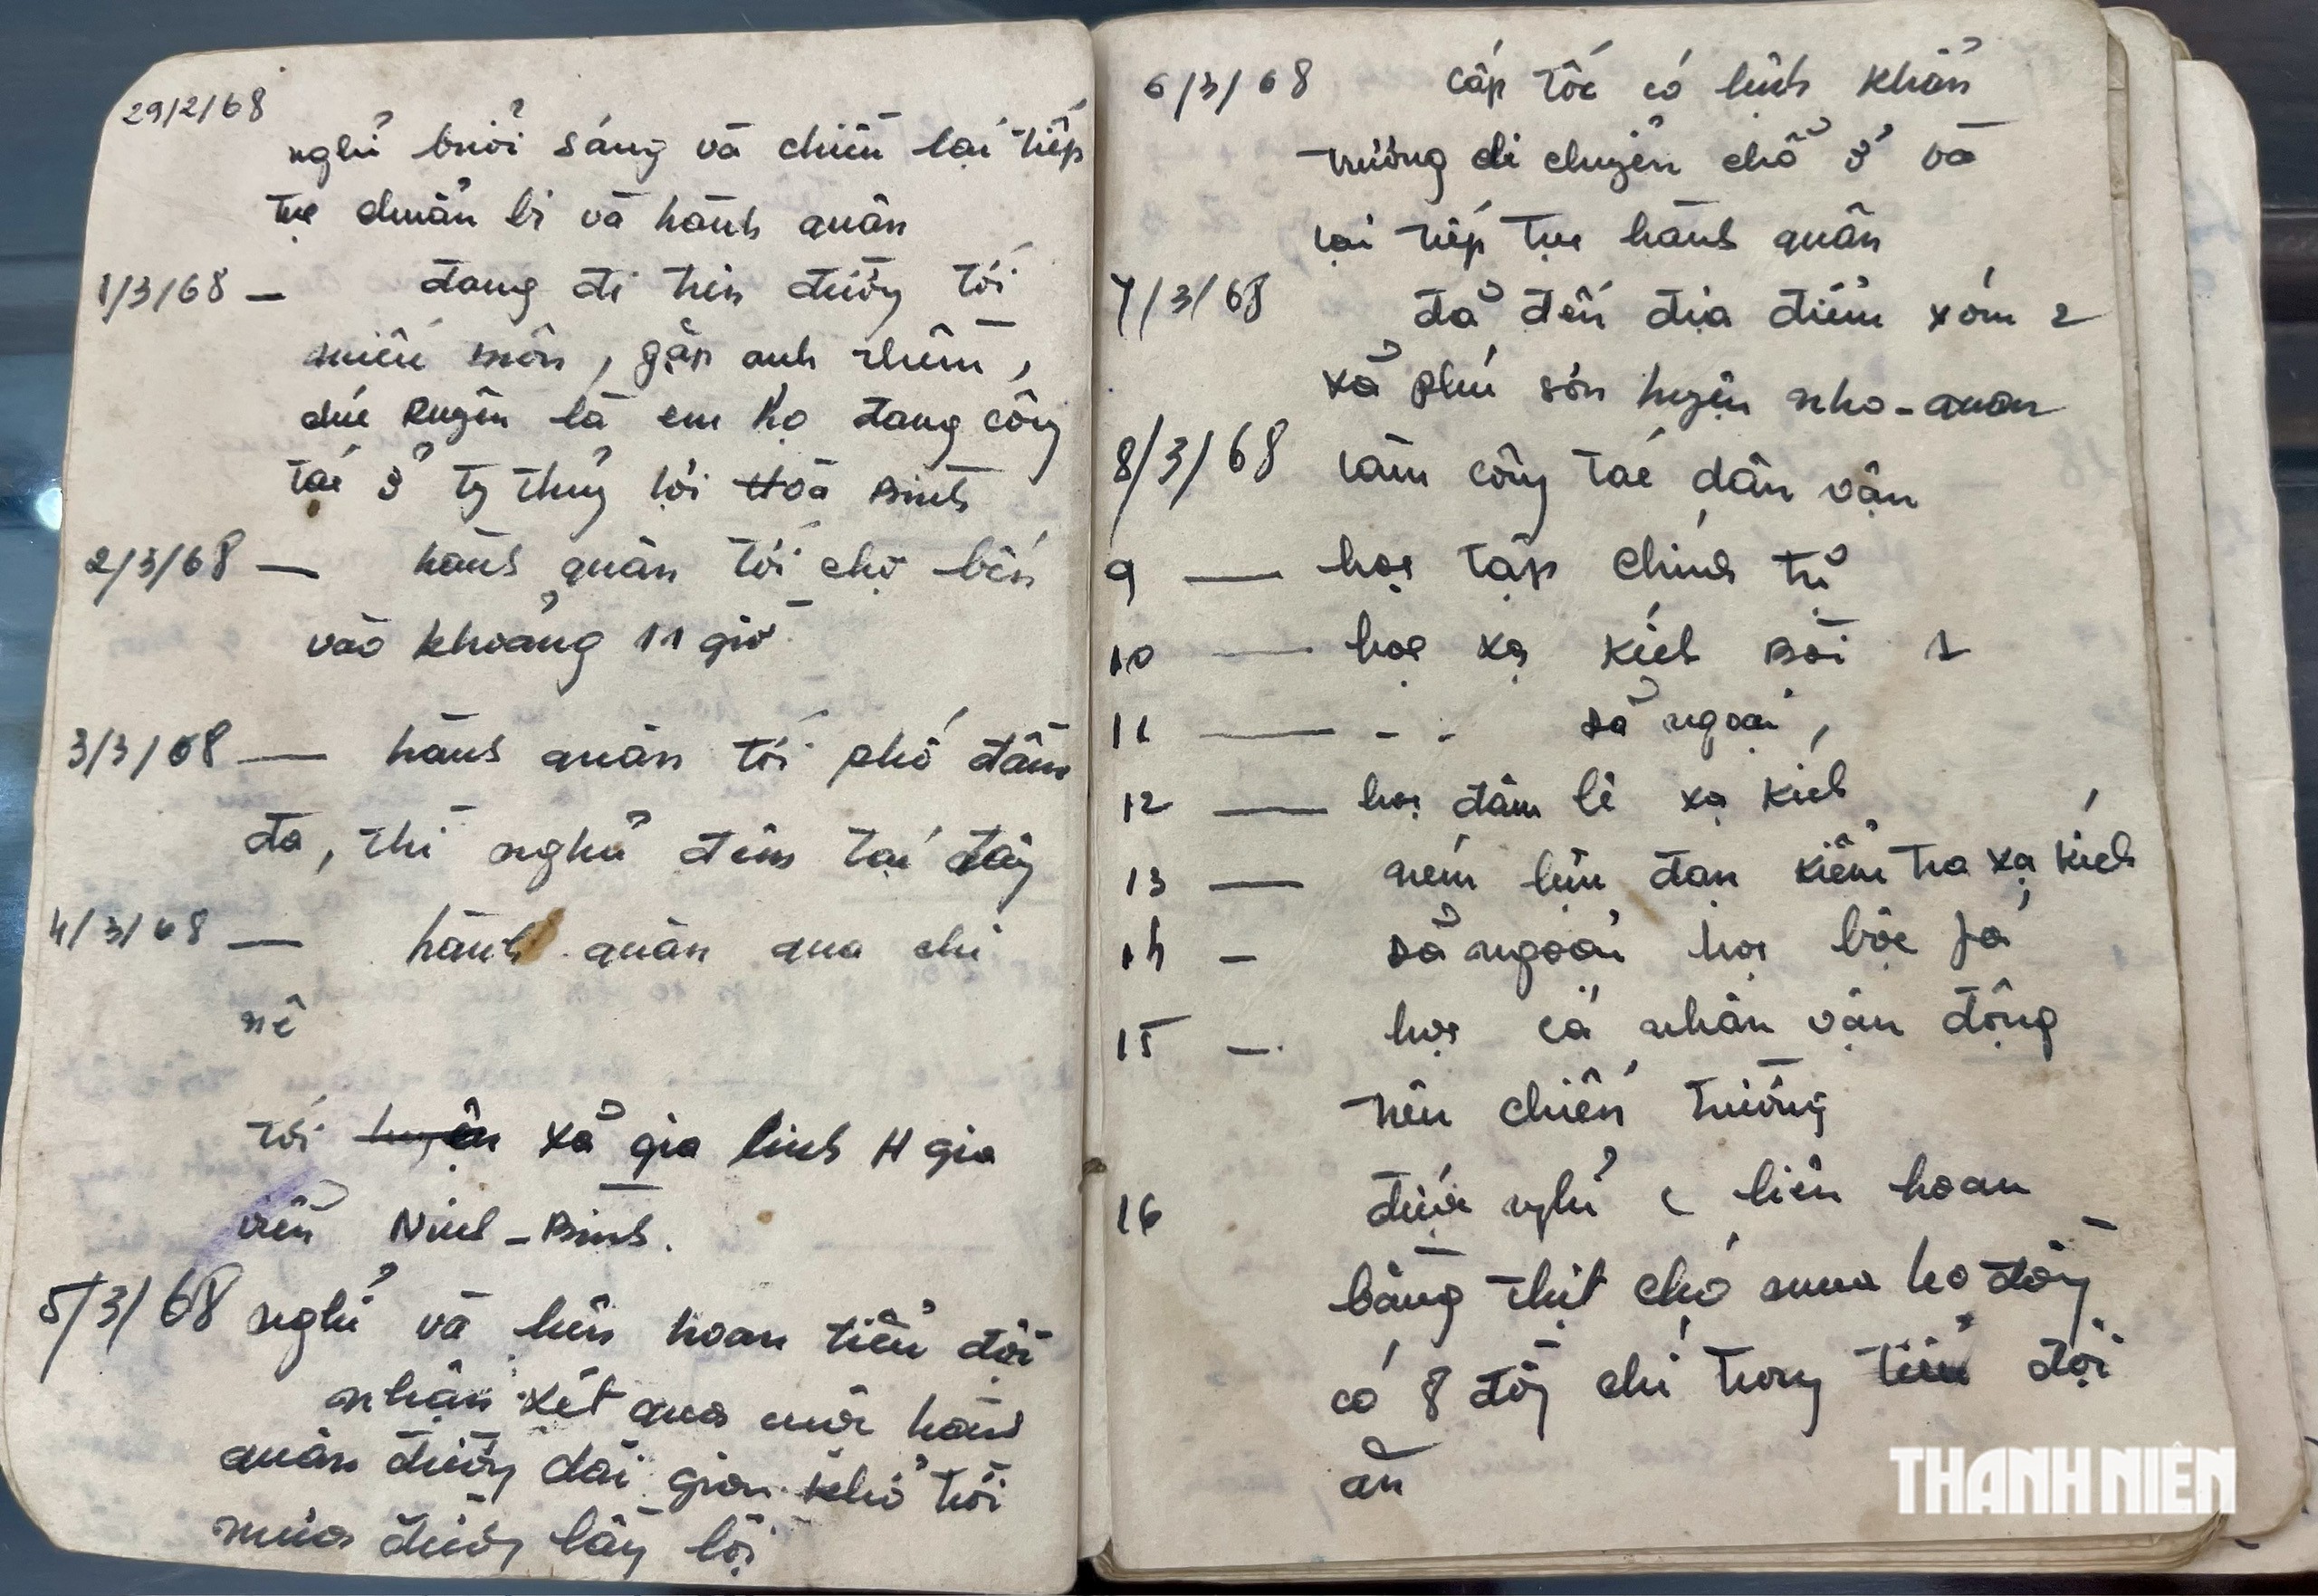 29/2/68
nghỉ buổi sáng và chiều lại tiếp
tục chuẩn bị và hành quân
1/3/68 — đang đi trên đường tới
miếu môn, gặp anh thêm,
chú Ruyên là em họ đang công
tác ở ty thuỷ lợi Hoà Bình
2/3/68 — hành quân tới chợ bến
vào khoảng 11 giờ
3/3/68 — hành quân tới phố đầm
đa, thì nghỉ đêm tại đây
4/3/68 — hành quân qua chi
nê
tới huyện xã gia linh H gia
viễn Ninh - Bình.
5/3/68 nghỉ và liên hoan tiểu đội
nhận xét qua cuộc hành
quân đường dài gian khổ trời
mưa đường lầy lội
6/3/68 cấp tốc có lệnh khẩn
trương di chuyển chỗ ở và
lại tiếp tục hành quân
7/3/68 đã đến địa điểm xóm 2
xã phú sơn huyện nho-quan
8/3/68 làm công tác dân vận
9 — học tập chính trị
10 — học xạ kích Bài 1
11 — - - dã ngoại,
12 — học đâm lê xạ kích
13 — ném lựu đạn kiểm tra xạ kích
14 — dã ngoại học bộc fá
15 — học cá nhân vận động
trên chiến trường
16 được nghỉ liên hoan
bằng thịt chó mua đồng
có 8 đồng chí trong tiểu đội
ăn
THANH NIÊN